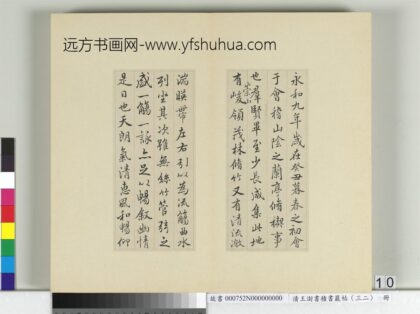 远方书画网-www.yfshuhua.com
永和九年歲在癸丑暮春之初會
于會稽山陰之蘭亭脩禊事
也群賢畢至少長咸集此地
有崇山峻領茂林脩竹又有清流激
湍暎帶左右引以為流觴曲水
列坐其次雖無絲竹管弦之
盛一觴一詠亦足以暢敘幽情
是日也天朗氣清惠風和暢仰
10
故書 000752N000000000 清王澍書積書巖帖(三二) 冊